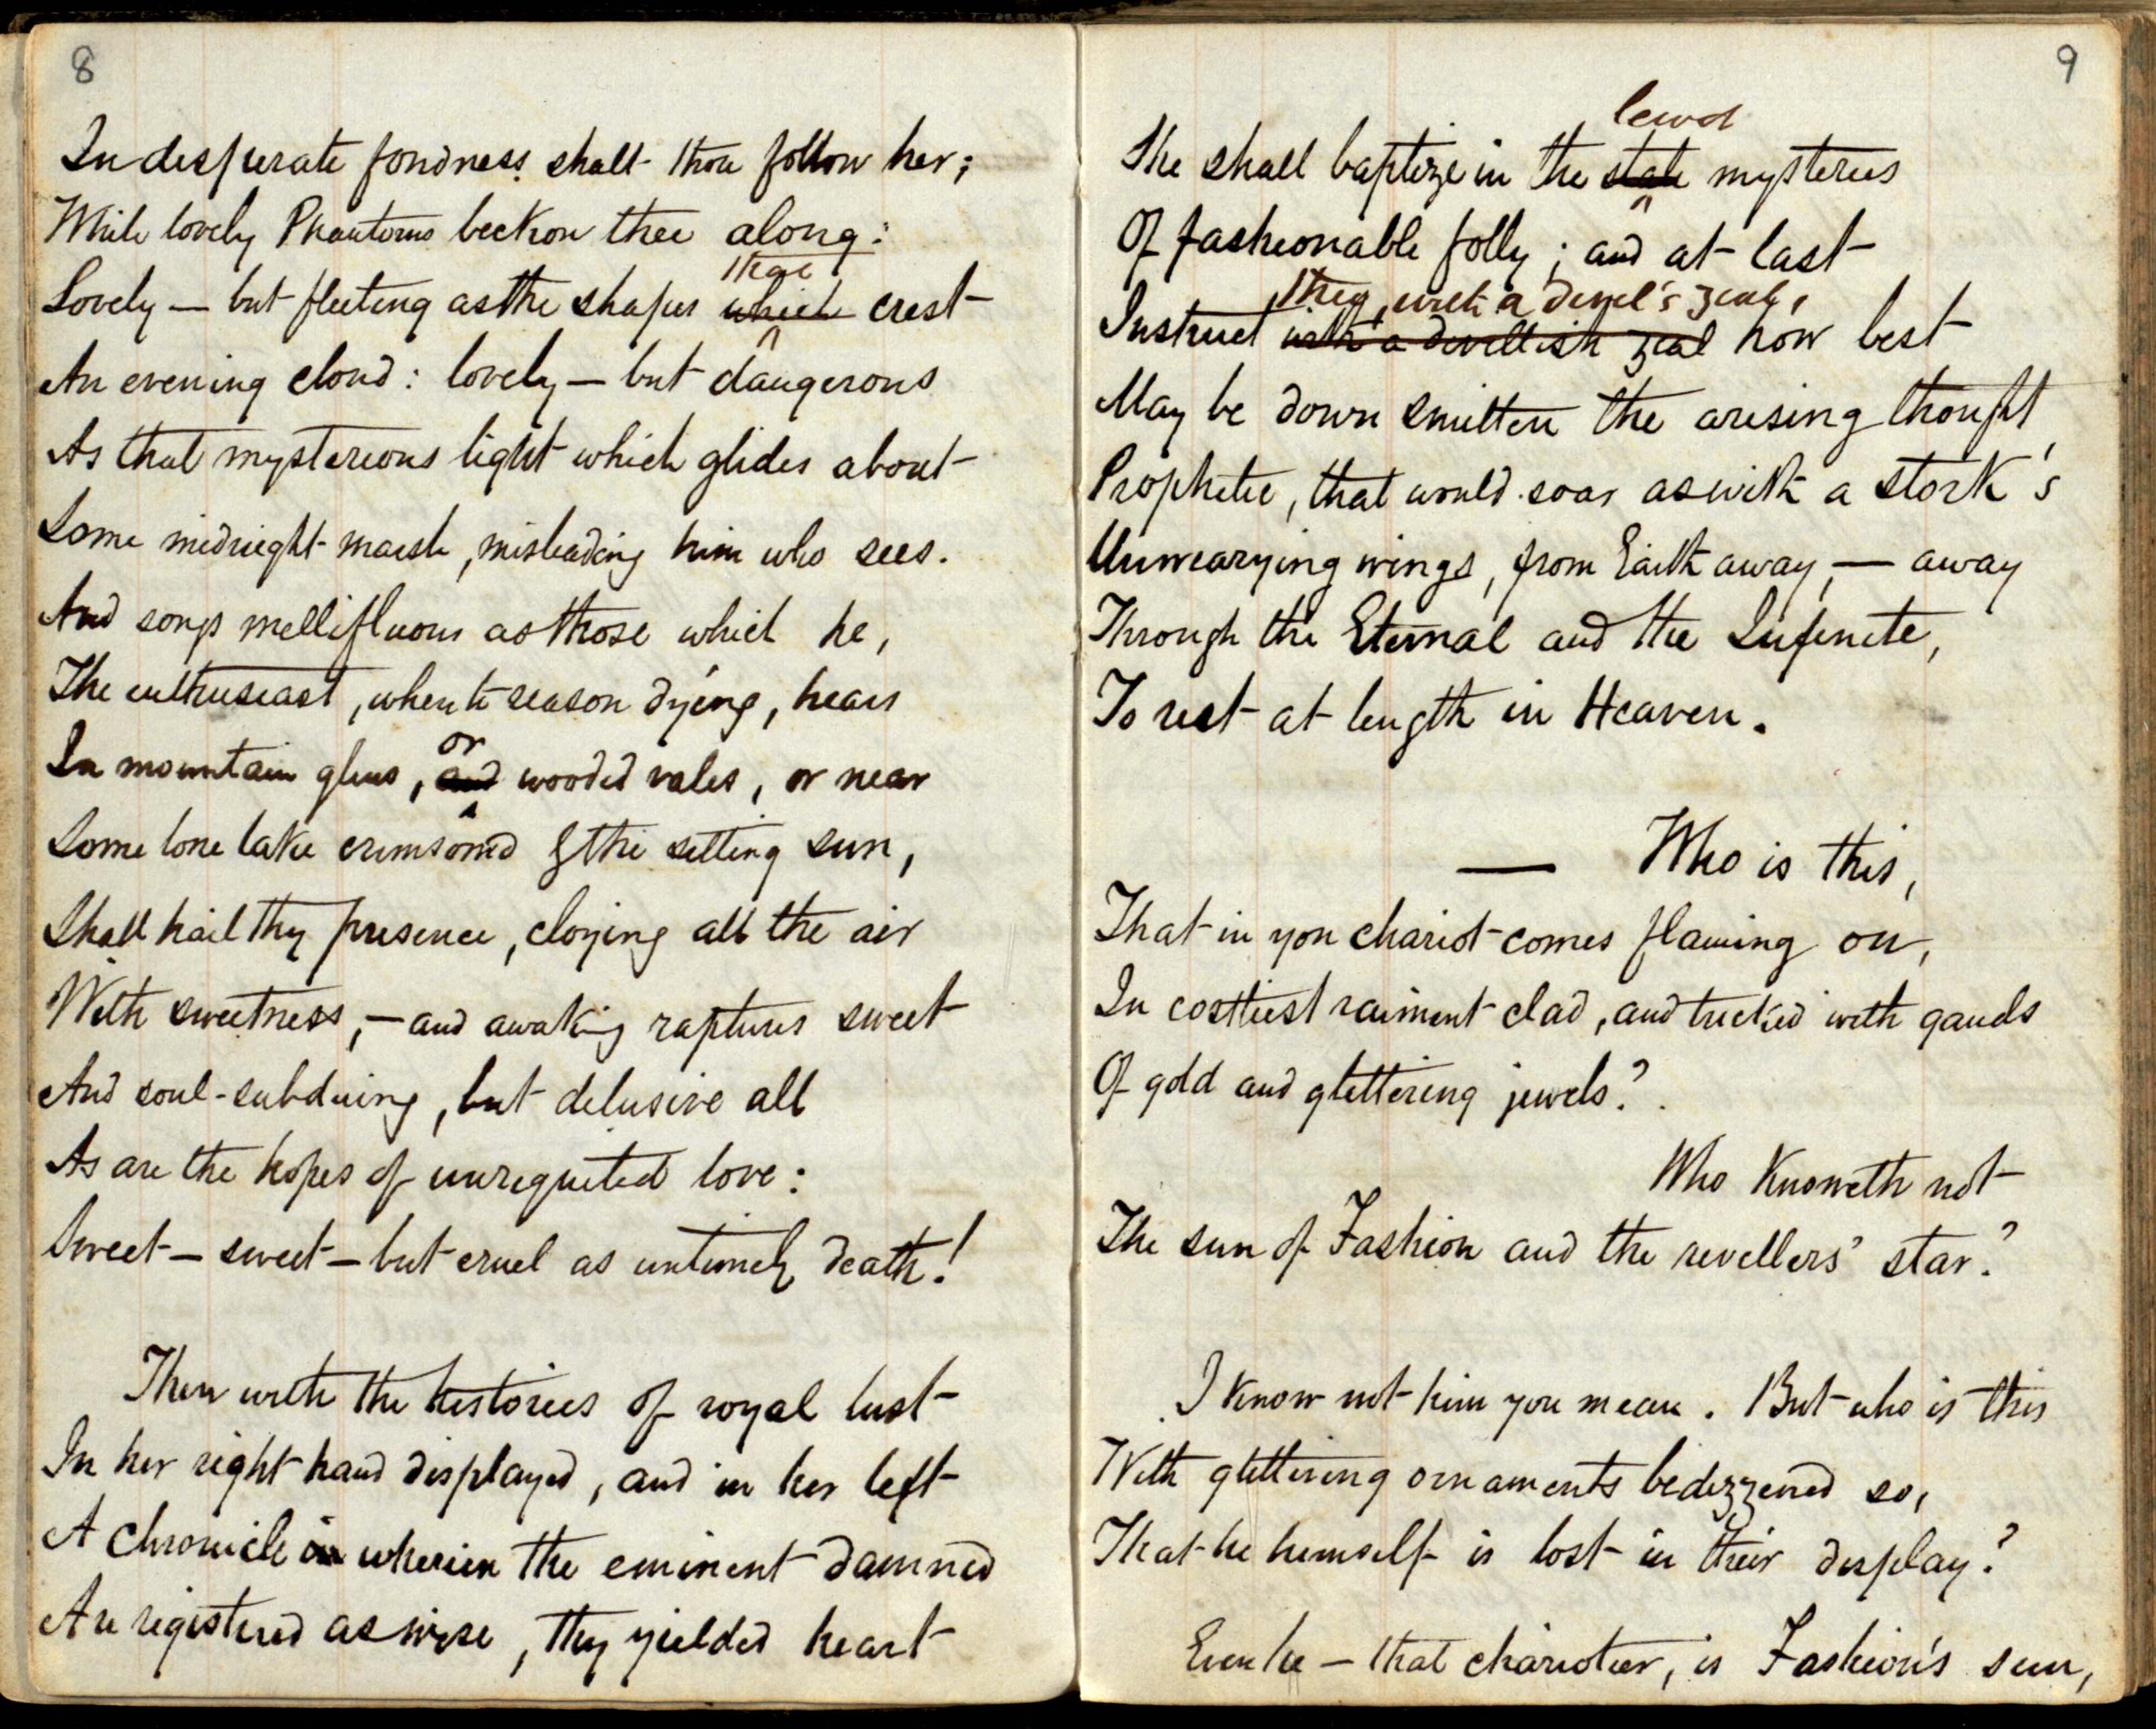 8
In desperate fondness shalt thou follow her;
While lovely Phantoms beckon thee along:
that
Lovely — but fleeting as the shapes which crest
An evening cloud: lovely — but dangerous
As that mysterious light which glides about
Some midnight marsh, misleading him who sees.
And songs mellifluous as those which he,
The enthusiast, when the season dying, hears
or
In mountain glens, and wooded vales, or near
Some lone lake crimsoned by the setting sun,
Shall hail thy presence, cloying all the air
With sweetness, — and awaking raptures sweet
And soul-subduing, but delusive all
As are the hopes of unrequited love:
Sweet — sweet — but cruel as untimely death!
Then with the histories of royal lust
In her right hand displayed, and in her left
A chronicle in wherein the eminent damned
Are registered as wise, thy yielded heart
9
lewd
She shall baptize in the state mysteries
Of fashionable folly; and at last
thee, with a devil's zeal,
Instruct with a devilish zeal how best
May be down smitten the arising thought,
Prophetic, that would soar as with a stork's
Unwearying wings, from Earth away, — away
Through the Eternal and the Infinite,
To rest at length in Heaven.
— Who is this,
That in yon chariot comes flaming on,
In costliest raiment clad, and tricked with gauds
Of gold and glittering jewels?
Who knoweth not
The sun of Fashion and the revellers' star?
I know not him you mean. But who is this
With glittering ornaments bedizzened so,
That he himself is lost in their display?
Even he — that charioteer, is Fashion's sun,